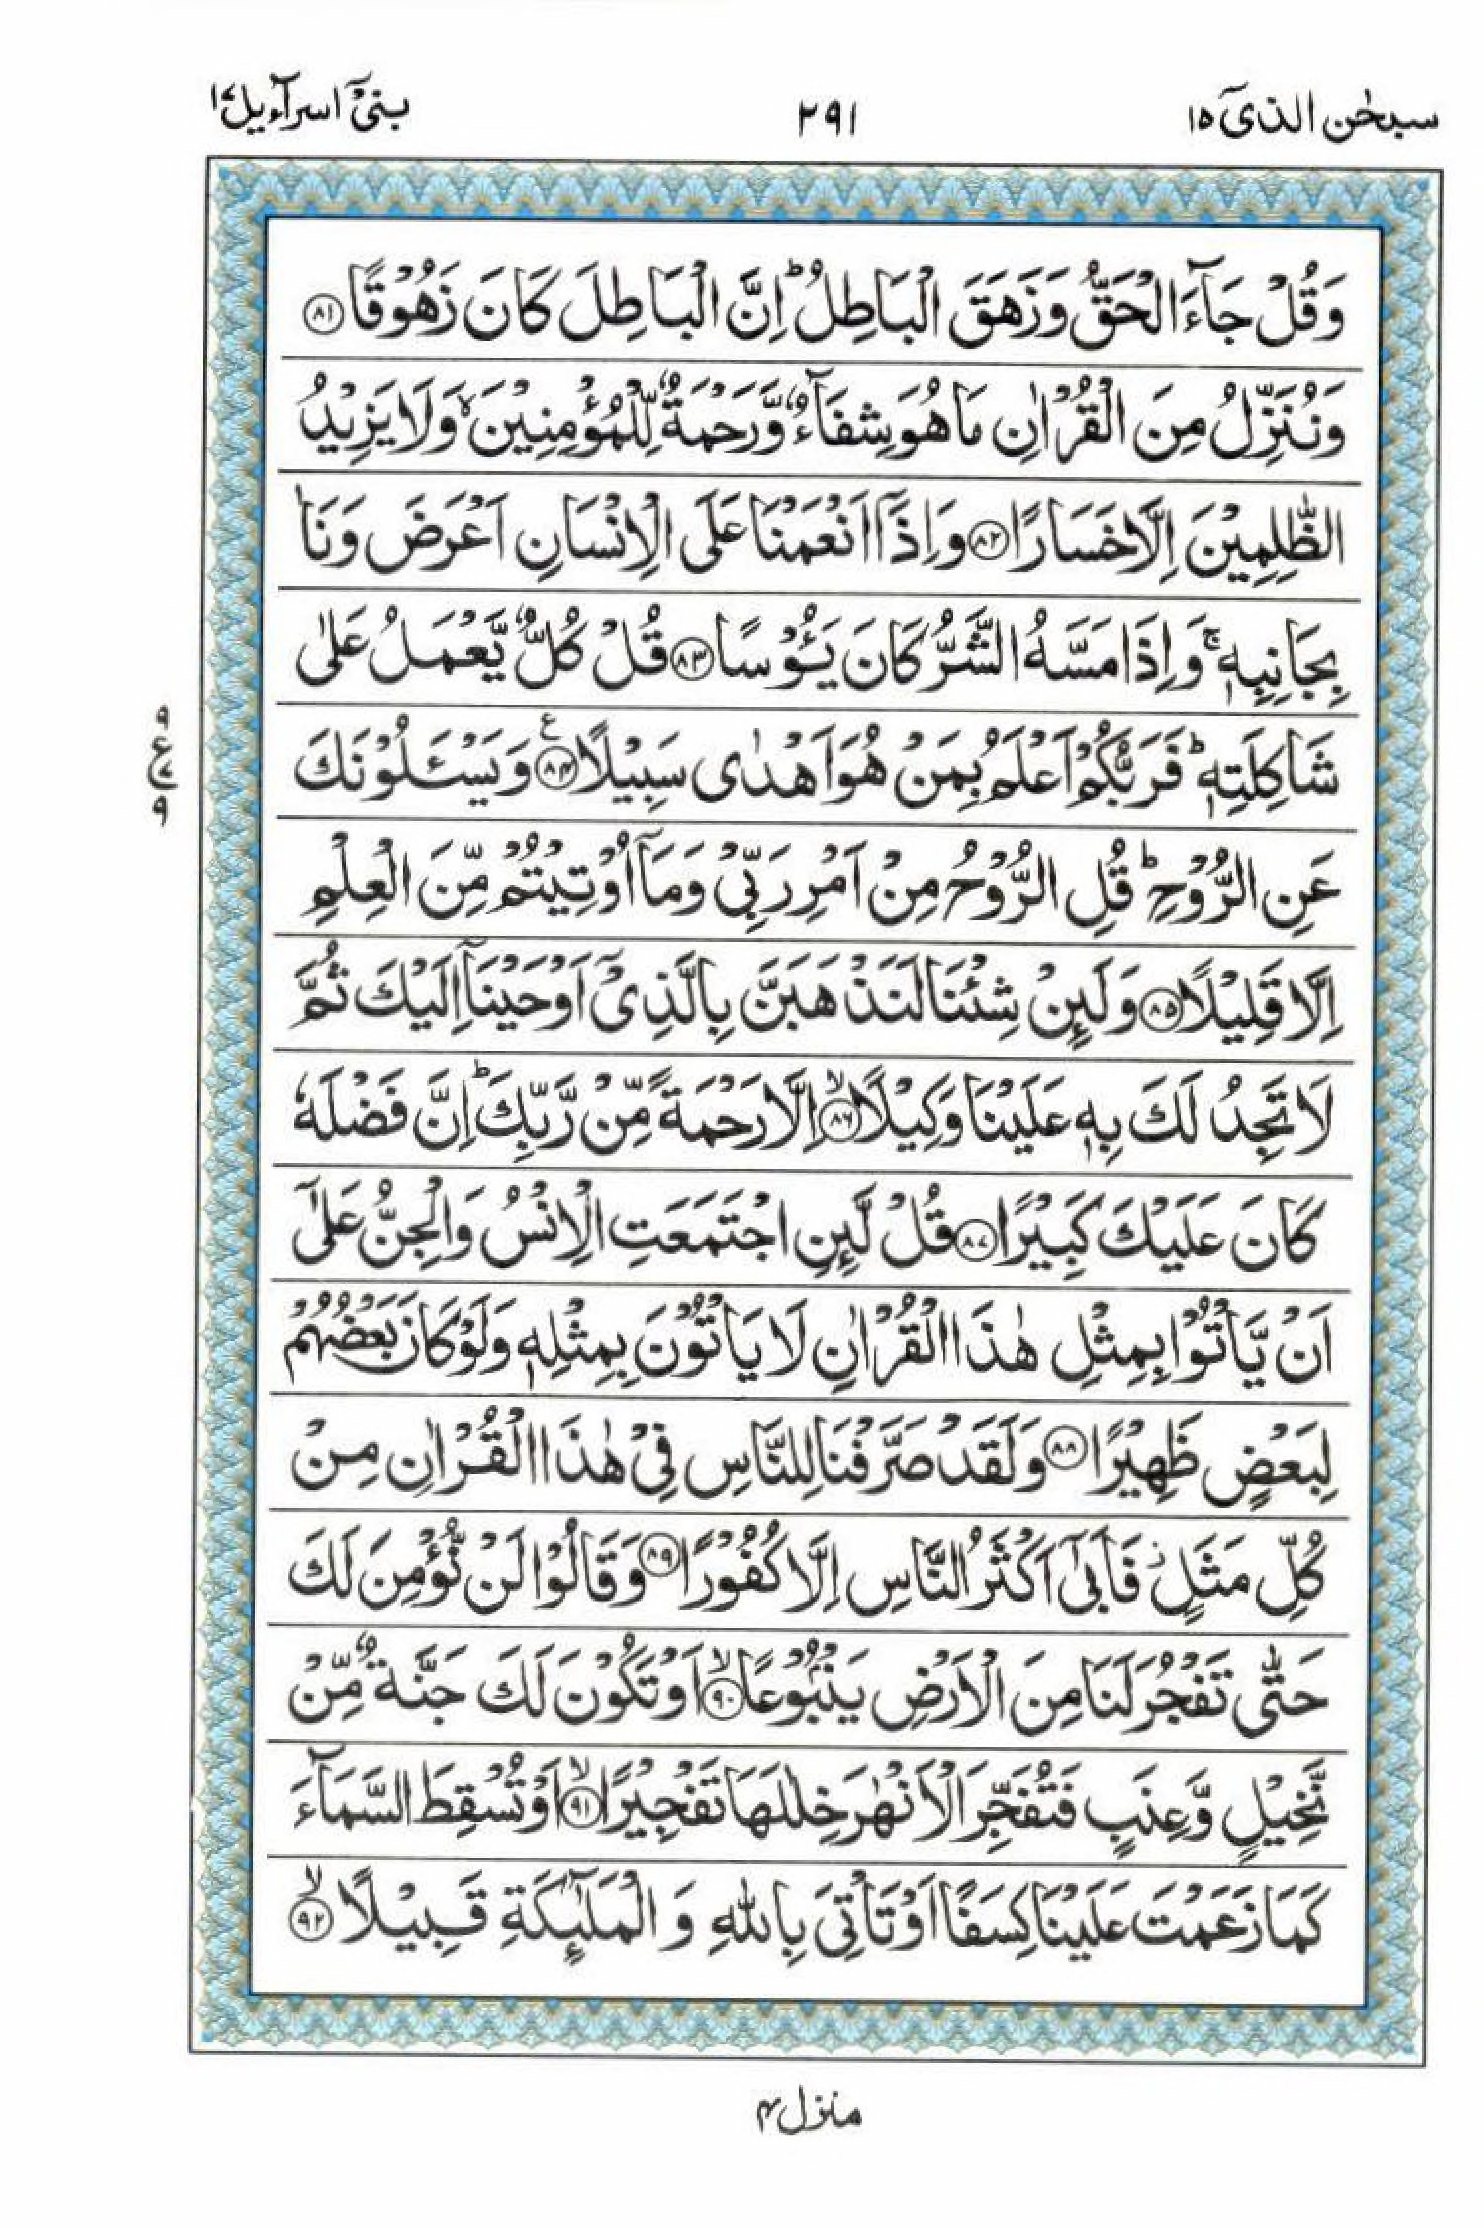 سبحٰن الذیٓ ۱۵
۲۹۱
بنیٓ اسرآءیل ۱۷
وَقُلْ جَآءَ الْحَقُّ وَزَهَقَ الْبَاطِلُ ؕ اِنَّ الْبَاطِلَ كَانَ زَهُوْقًا ۸۱
وَنُنَزِّلُ مِنَ الْقُرْاٰنِ مَا هُوَ شِفَآءٌ وَّرَحْمَةٌ لِّلْمُؤْمِنِيْنَ ۙ وَلَا يَزِيْدُ
الظّٰلِمِيْنَ اِلَّا خَسَارًا ۸۲ وَاِذَآ اَنْعَمْنَا عَلَى الْاِنْسَانِ اَعْرَضَ وَنَاٰ
بِجَانِبِهٖ ۚ وَاِذَا مَسَّهُ الشَّرُّ كَانَ يَـُٔوْسًا ۸۳ قُلْ كُلٌّ يَّعْمَلُ عَلٰى
شَاكِلَتِهٖ ؕ فَرَبُّكُمْ اَعْلَمُ بِمَنْ هُوَ اَهْدٰى سَبِيْلًا ۸۴ ع وَيَسْـَٔلُوْنَكَ
عَنِ الرُّوْحِ ؕ قُلِ الرُّوْحُ مِنْ اَمْرِ رَبِّيْ وَمَآ اُوْتِيْتُمْ مِّنَ الْعِلْمِ
اِلَّا قَلِيْلًا ۸۵ وَلَئِنْ شِئْنَا لَنَذْهَبَنَّ بِالَّذِيْٓ اَوْحَيْنَآ اِلَيْكَ ثُمَّ
لَا تَجِدُ لَكَ بِهٖ عَلَيْنَا وَكِيْلًا ۸۶ ۙ اِلَّا رَحْمَةً مِّنْ رَّبِّكَ ؕ اِنَّ فَضْلَهٗ
كَانَ عَلَيْكَ كَبِيْرًا ۸۷ قُلْ لَّئِنِ اجْتَمَعَتِ الْاِنْسُ وَالْجِنُّ عَلٰٓى
اَنْ يَّاْتُوْا بِمِثْلِ هٰذَا الْقُرْاٰنِ لَا يَاْتُوْنَ بِمِثْلِهٖ وَلَوْ كَانَ بَعْضُهُمْ
لِبَعْضٍ ظَهِيْرًا ۸۸ وَلَقَدْ صَرَّفْنَا لِلنَّاسِ فِيْ هٰذَا الْقُرْاٰنِ مِنْ
كُلِّ مَثَلٍ ۫ فَاَبٰٓى اَكْثَرُ النَّاسِ اِلَّا كُفُوْرًا ۸۹ وَقَالُوْا لَنْ نُّؤْمِنَ لَكَ
حَتّٰى تَفْجُرَ لَنَا مِنَ الْاَرْضِ يَنْۢبُوْعًا ۹۰ ۙ اَوْ تَكُوْنَ لَكَ جَنَّةٌ مِّنْ
نَّخِيْلٍ وَّعِنَبٍ فَتُفَجِّرَ الْاَنْهٰرَ خِلٰلَهَا تَفْجِيْرًا ۹۱ ۙ اَوْ تُسْقِطَ السَّمَآءَ
كَمَا زَعَمْتَ عَلَيْنَا كِسَفًا اَوْ تَاْتِيَ بِاللّٰهِ وَالْمَلٰٓئِكَةِ قَبِيْلًا ۹۲ ۙ
۹
ع ۸
۹
منزل ۴